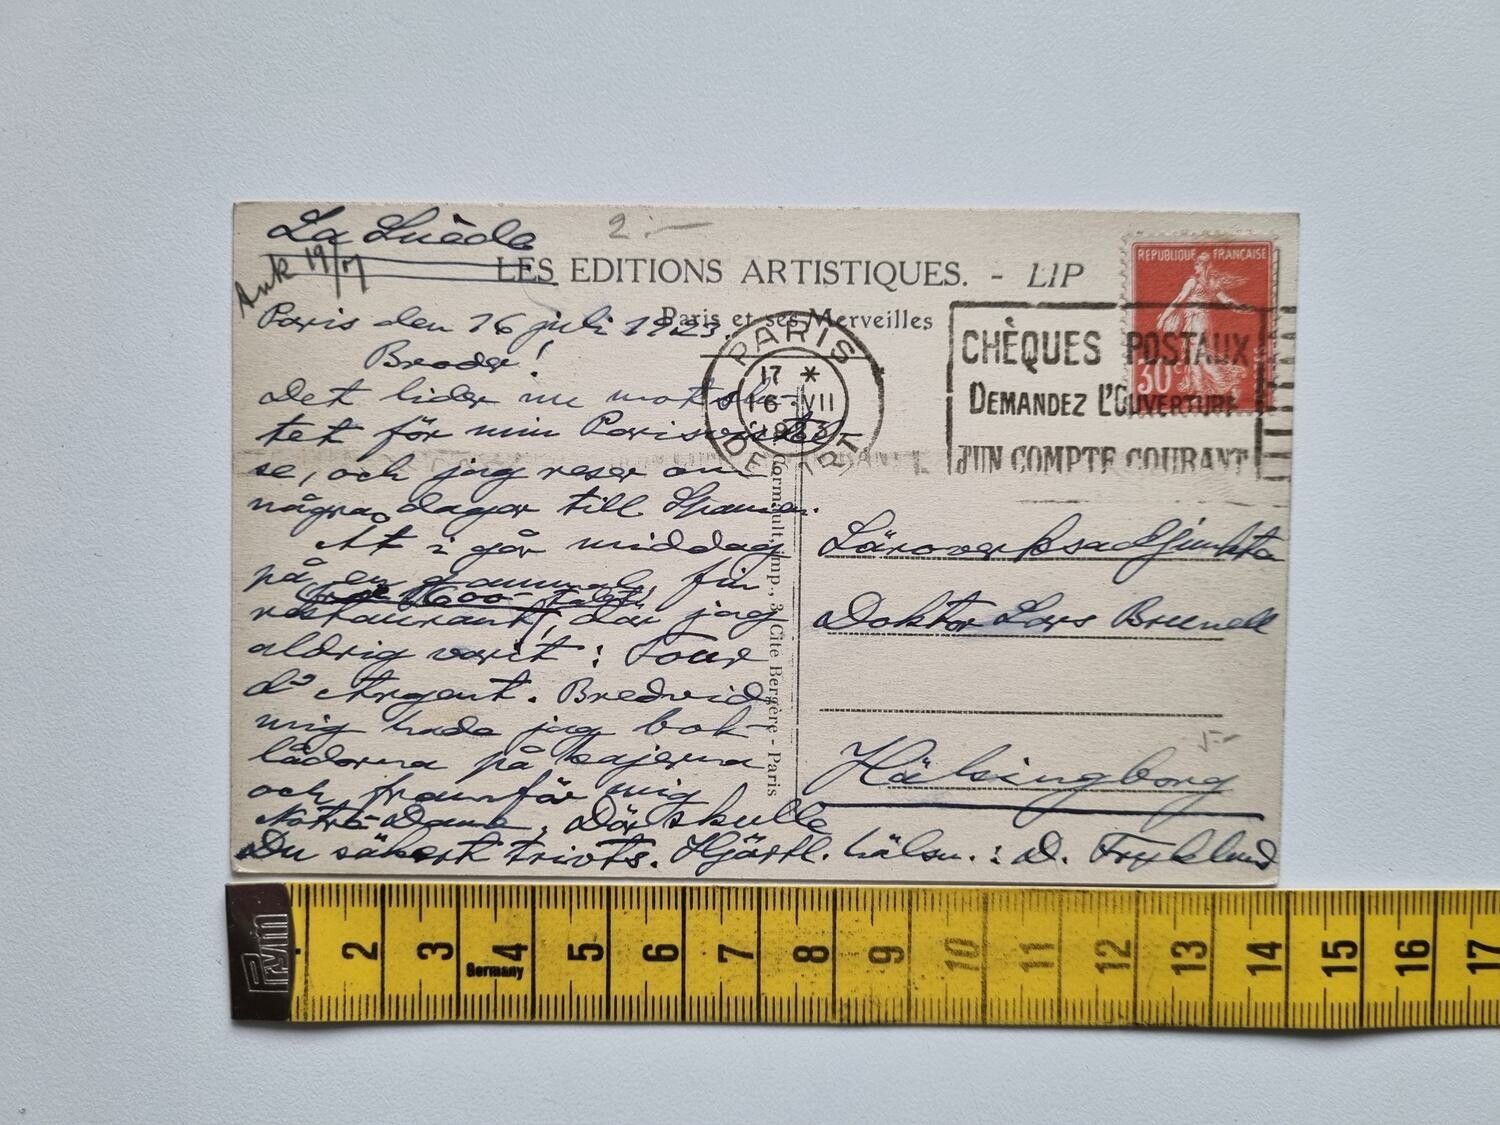 La Suède
2:-
Ank 19/7
LES EDITIONS ARTISTIQUES. - LIP
Paris et ses Merveilles
Paris den 16 juli 1923.
Broder!
Det lider nu mot slu-
tet för min Parisvistel-
se, och jag reser om
några dagar till Spanien.
Åt i går middag
på en gammal, fin
1600-talet,
restaurant, där jag
aldrig varit: Tour
d'Argent. Bredvid
mig hade jag bok-
lådorna på kajerna
och framför mig
Notre-Dame. Där skulle
Du säkert trivts. Hjärtl. hälsn.: D. Fryklund
PARIS
17 *
16 · VII
REPUBLIQUE FRANÇAISE
30c
CHÈQUES POSTAUX
DEMANDEZ L'OUVERTURE
D'UN COMPTE COURANT
imp., 3, Cité Bergère - Paris
Läroverksadjunkten
Doktor Lars Brunell
Hälsingborg
Prym
2 3 4 5 6 7 8 9 10 11 12 13 14 15 16 17
Germany